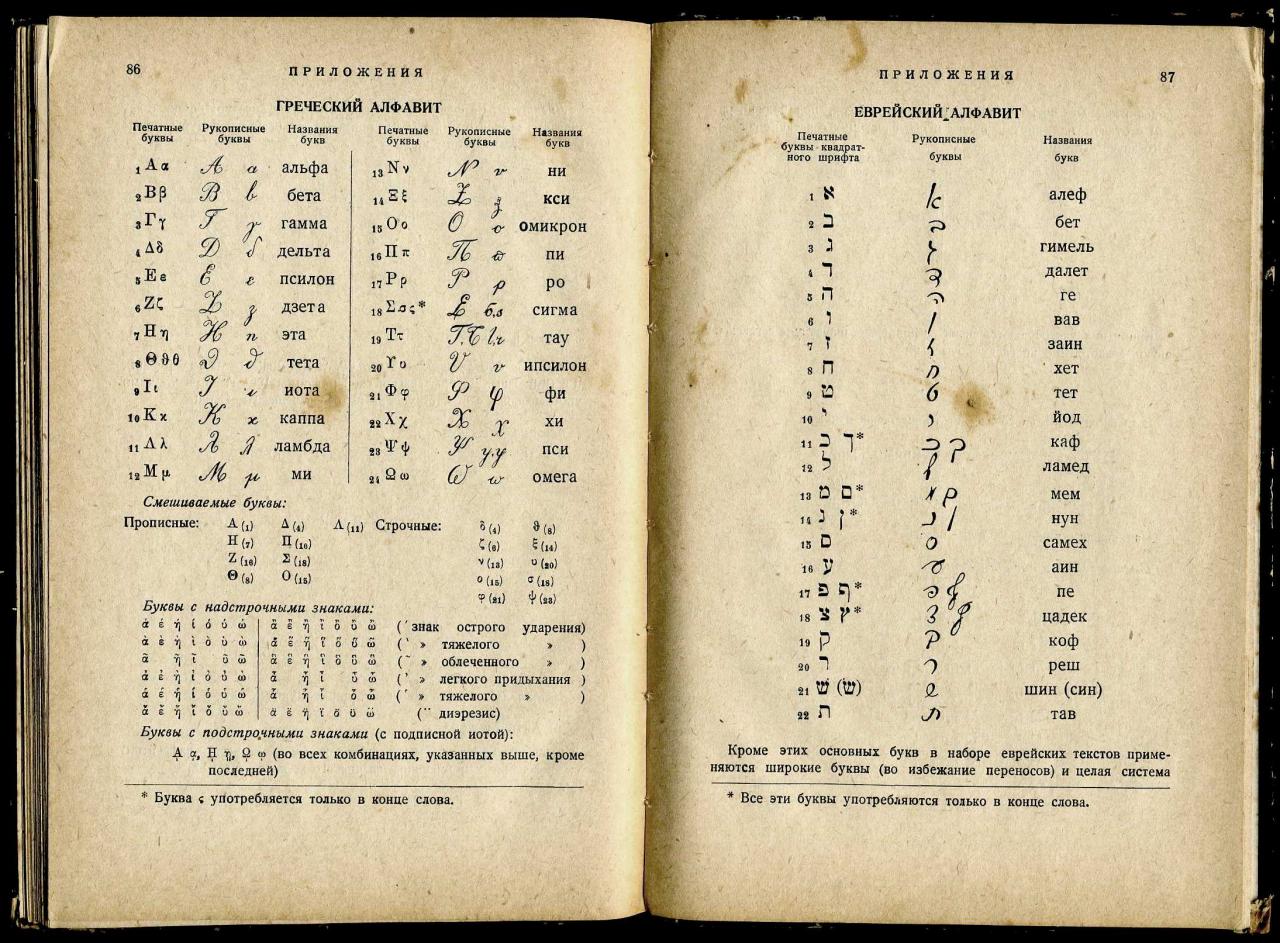 86
ПРИЛОЖЕНИЯ
ГРЕЧЕСКИЙ АЛФАВИТ
Печатные буквы Рукописные буквы Названия букв Печатные буквы Рукописные буквы Названия букв
1 Α α альфа
2 Β β бета
3 Γ γ гамма
4 Δ δ дельта
5 Ε ε псилон
6 Ζ ζ дзета
7 Η η эта
8 Θ ϑ θ тета
9 Ι ι иота
10 Κ κ каппа
11 Λ λ ламбда
12 Μ μ ми
13 Ν ν ни
14 Ξ ξ кси
15 Ο ο омикрон
16 Π π пи
17 Ρ ρ ро
18 Σ σ ς* сигма
19 Τ τ тау
20 Υ υ ипсилон
21 Φ φ фи
22 Χ χ хи
23 Ψ ψ пси
24 Ω ω омега
Смешиваемые буквы:
Прописные: Α (1) Δ (4) Λ (11) Строчные: δ (4) ϑ (8)
Η (7) Π (16) ζ (6) ξ (14)
Ζ (16) Σ (18) ν (13) υ (20)
Θ (8) Ο (15) ο (15) σ (18)
φ (21) ψ (23)
Буквы с надстрочными знаками:
(´ знак острого ударения)
(` » тяжелого » )
(῀ » облеченного » )
(᾿ » легкого придыхания )
(῾ » тяжелого » )
(¨ диэрезис)
Буквы с подстрочными знаками (с подписной иотой):
ᾼ ᾳ, ῌ ῃ, ῼ ῳ (во всех комбинациях, указанных выше, кроме
последней)
* Буква ς употребляется только в конце слова.
ПРИЛОЖЕНИЯ
87
ЕВРЕЙСКИЙ АЛФАВИТ
Печатные буквы квадратного шрифта Рукописные буквы Названия букв
1 א алеф
2 ב бет
3 ג гимель
4 ד далет
5 ה ге
6 ו вав
7 ז заин
8 ח хет
9 ט тет
10 י йод
11 כ ך* каф
12 ל ламед
13 מ ם* мем
14 נ ן* нун
15 ס самех
16 ע аин
17 פ ף* пе
18 צ ץ* цадек
19 ק коф
20 ר реш
21 שׁ (שׂ) шин (син)
22 ת тав
Кроме этих основных букв в наборе еврейских текстов приме-
няются широкие буквы (во избежание переносов) и целая система
* Все эти буквы употребляются только в конце слова.